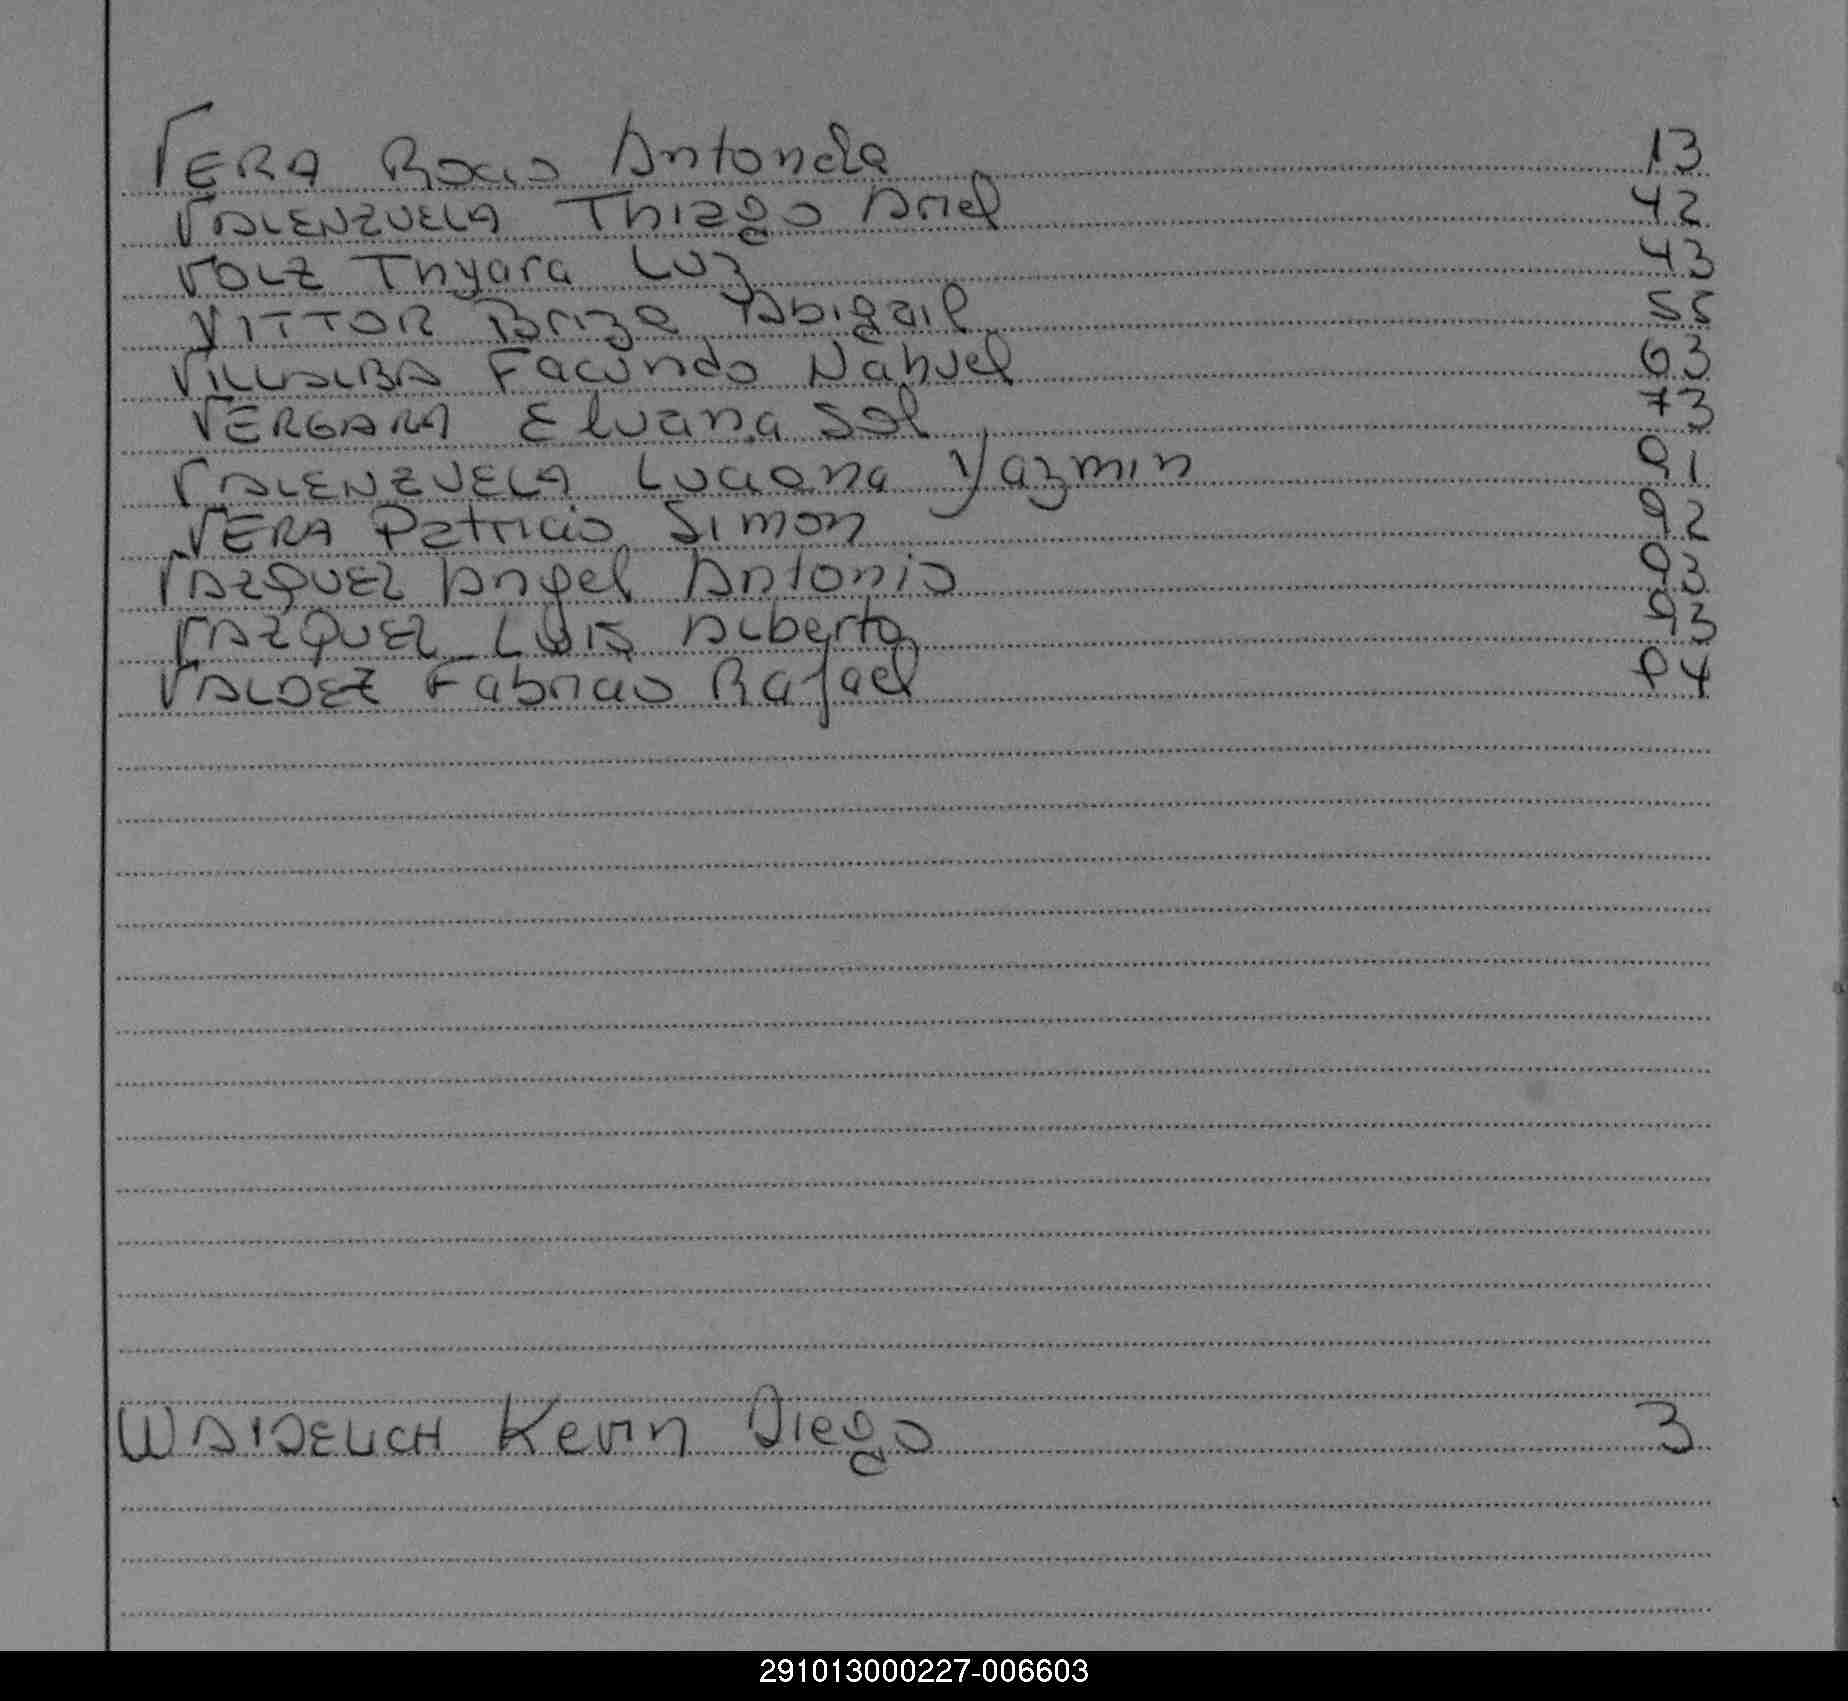 VERA Rocio Antonela 13
VALENZUELA Thiago Ariel 42
VOLZ Thyara Luz 43
VITTOR Briza Abigail 55
VILLALBA Facundo Nahuel 63
VERGARA Eluana Sol 73
VALENZUELA Luciana Yazmin 91
VERA Patricio Simon 92
VAZQUEZ Angel Antonio 93
VAZQUEZ Luis Alberto 93
VALDEZ Fabricio Rafael 94
WAIDELICH Kevin Diego 3
291013000227-006603